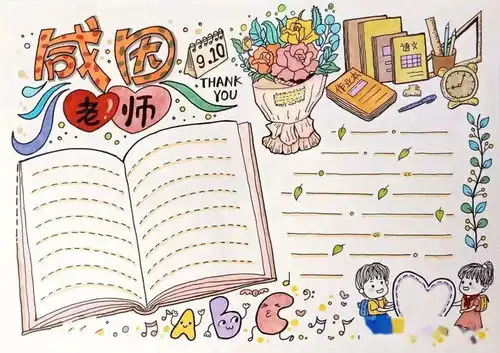 感恩
老师
9.10
THANK
YOU
语文
作业本
AbC